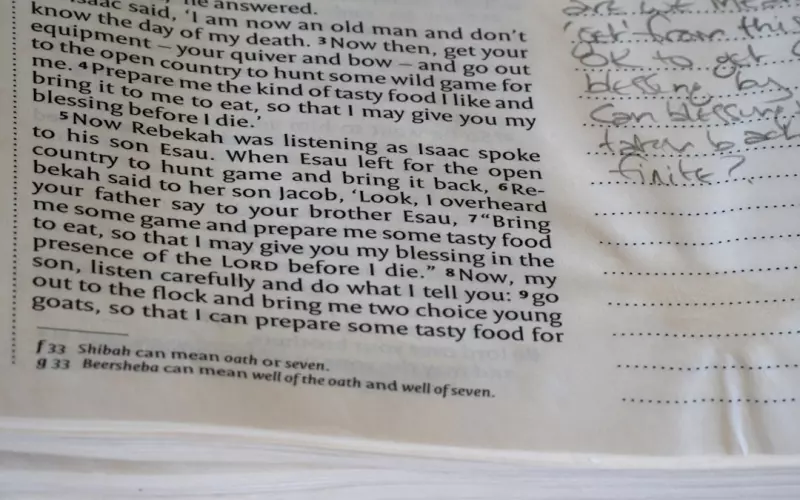 he answered.
Isaac said, 'I am now an old man and don't
know the day of my death. 3 Now then, get your
equipment – your quiver and bow – and go out
to the open country to hunt some wild game for
me. 4 Prepare me the kind of tasty food I like and
bring it to me to eat, so that I may give you my
blessing before I die.'
5 Now Rebekah was listening as Isaac spoke
to his son Esau. When Esau left for the open
country to hunt game and bring it back, 6 Re-
bekah said to her son Jacob, 'Look, I overheard
your father say to your brother Esau, 7 "Bring
me some game and prepare me some tasty food
to eat, so that I may give you my blessing in the
presence of the LORD before I die." 8 Now, my
son, listen carefully and do what I tell you: 9 go
out to the flock and bring me two choice young
goats, so that I can prepare some tasty food for
f 33 Shibah can mean oath or seven.
g 33 Beersheba can mean well of the oath and well of seven.
from this
OK to get
blessing by
Can blessing
taken back
finite?